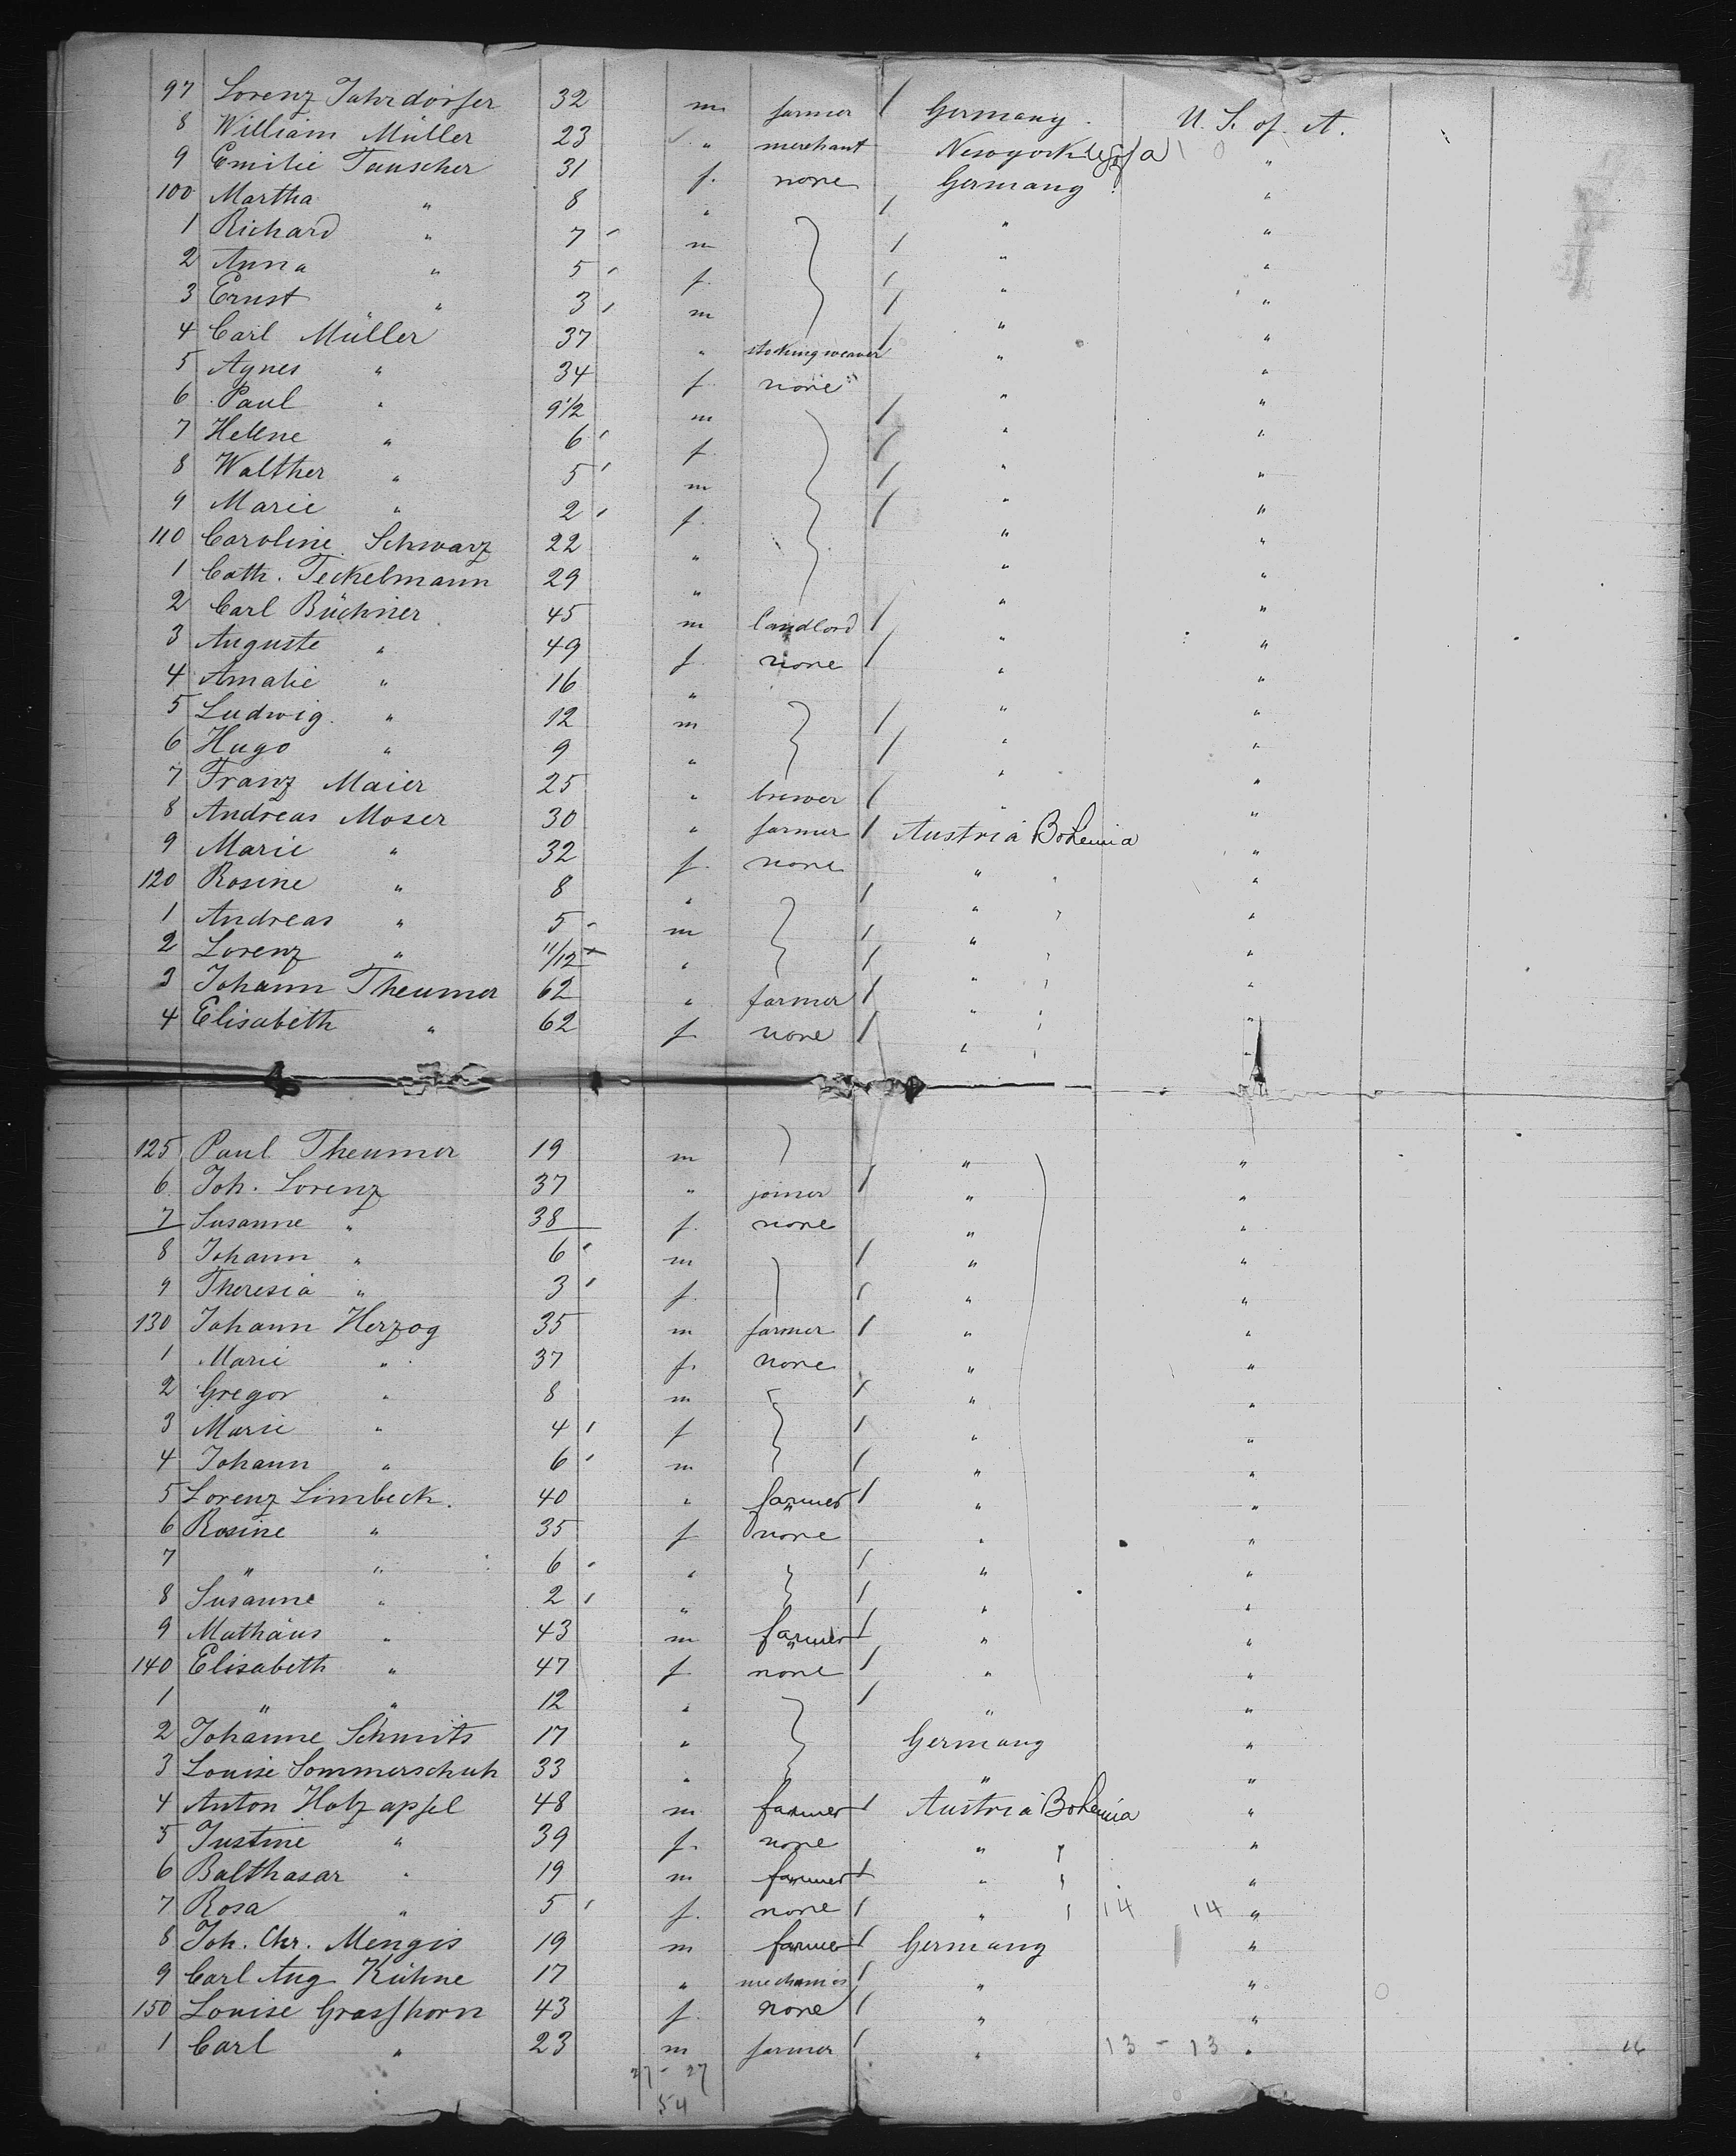 97 Lorenz Fahrdörfer 32 m farmer / Germany. U. S. of A.
8 William Müller 23 " merchant Newyork usofa "
9 Emilie Tauscher 31 f. none Germany "
100 Martha " 8 " / " "
1 Richard " 7 m / " "
2 Anna " 5 f. / " "
3 Ernst " 3 m / " "
4 Carl Müller 37 " stockingweaver / " "
5 Agnes " 34 f. none " "
6 Paul " 9 1/2 m / " "
7 Hellene " 6 f. / " "
8 Walther " 5 m / " "
9 Marie " 2 f. / " "
110 Caroline Schwarz 22 " " "
1 Cath. Teckelmann 29 " " "
2 Carl Büchner 45 m landlord / " "
3 Auguste " 49 f. none / " "
4 Amalie " 16 " " "
5 Ludwig " 12 m / " "
6 Hugo " 9 " / " "
7 Franz Maier 25 " brewer / " "
8 Andreas Moser 30 " farmer / Austria Bohemia "
9 Marie " 32 f. none " " "
120 Rosine " 8 " / " " "
1 Andreas " 5 m / " "
2 Lorenz " 11/12 " / " " "
3 Johann Theumer 62 " farmer / " " "
4 Elisabeth " 62 f. none / " " "
125 Paul Theumer 19 m " "
6 Joh. Lorenz 37 " joiner / " "
7 Susanne " 38 f. none " "
8 Johann " 6 m / " "
9 Theresia " 3 f. / " "
130 Johann Herzog 35 m farmer / " "
1 Marie " 37 f. none " "
2 Gregor " 8 m / " "
3 Marie " 4 f / " "
4 Johann " 6 m / " "
5 Lorenz Limbeck. 40 " farmer / " "
6 Rosine " 35 f none " "
7 " " 6 " / " "
8 Susanne " 2 " / " "
9 Mathäus " 43 m farmer / " "
140 Elisabeth " 47 f. none / " "
1 " " 12 " / " "
2 Johanne Schmits 17 " Germany "
3 Louise Sommerschuh 33 " " "
4 Anton Holzapfel 48 m farmer / Austria Bohemia "
5 Justine " 39 f. none " " "
6 Balthasar " 19 m farmer / " " "
7 Rosa " 5 f. none / " " 14 14 "
8 Joh. Chr. Mengis 19 m farmer / Germany "
9 Carl Aug Kühne 17 " / " "
150 Louise Grasshorn 43 f. none / " "
1 Carl " 23 m farmer / " 13 - 13 "
27 - 27
54